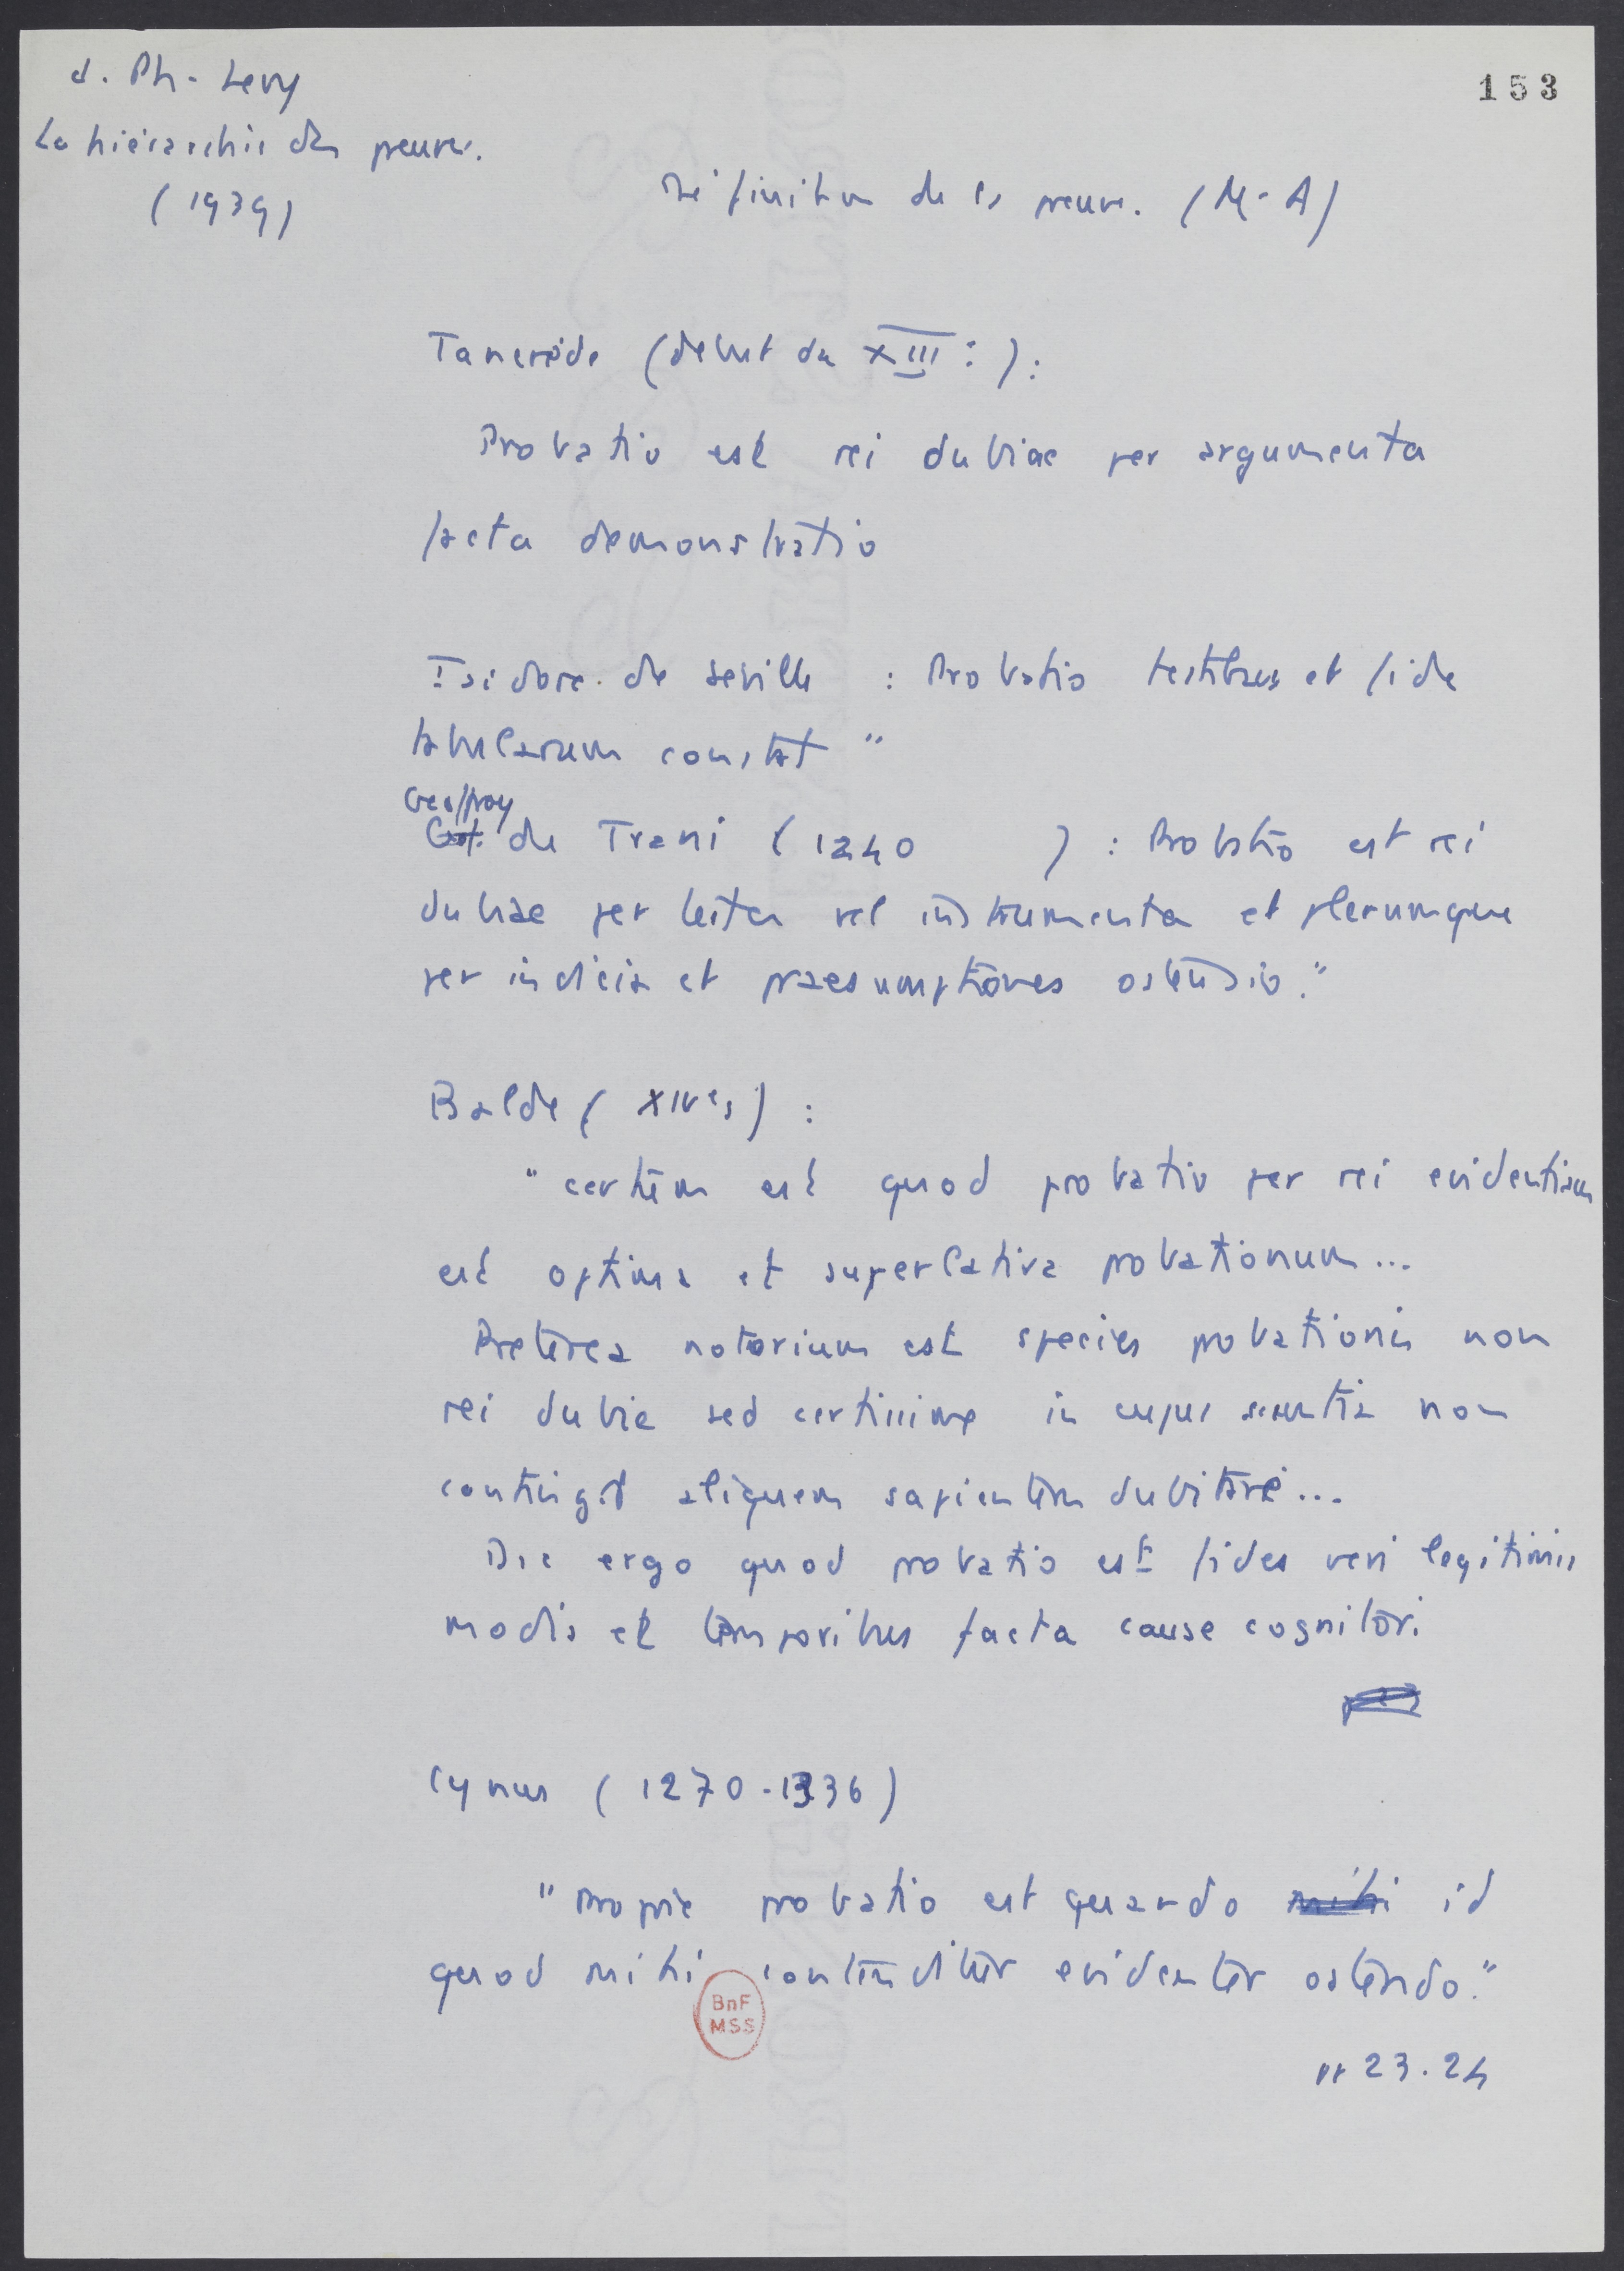 J. Ph. Levy
La hiérarchie des preuves.
(1939)
153
Définition de la preuve. (M-A)
Tancrède (début du XIIIe) :
Probatio est rei dubiae per argumenta
facta demonstratio
Isidore de Seville : Probatio testibus et fide
tabularum constat "
Geoffroy
de Trani (1240 ) : Probatio est rei
dubiae per testes vel instrumenta et plerumque
per indicia et praesumptiones ostensio."
Balde (XIVe s) :
"certum est quod probatio per rei evidentiam
est optima et superlativa probationum...
Preterea notorium est species probationis non
rei dubie sed certissime in cujus scientia non
contingit aliquem sapientem dubitare...
Dic ergo quod probatio est fides veri legitimis
modis et temporibus facta cause cognitori.
Cynus (1270-1336)
"Proprie probatio est quando mihi id
quod mihi contenditur evidenter ostendo."
pp 23.24
BnF
MSS